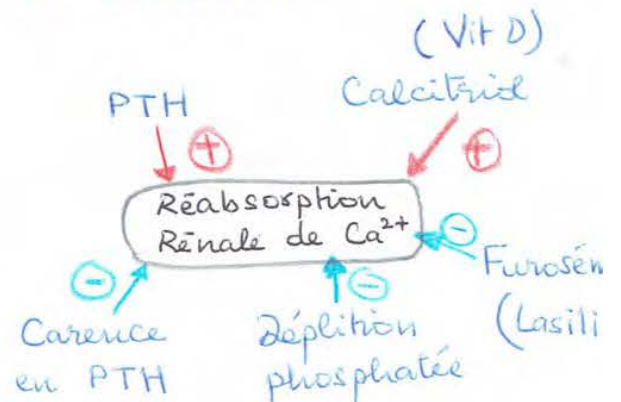 (Vit D)
Calcitriol
PTH
+
+
Réabsorption
Rénale de Ca²⁺
-
-
-
Furosém
(Lasili
Carence
en PTH
Déplition
phosphatée